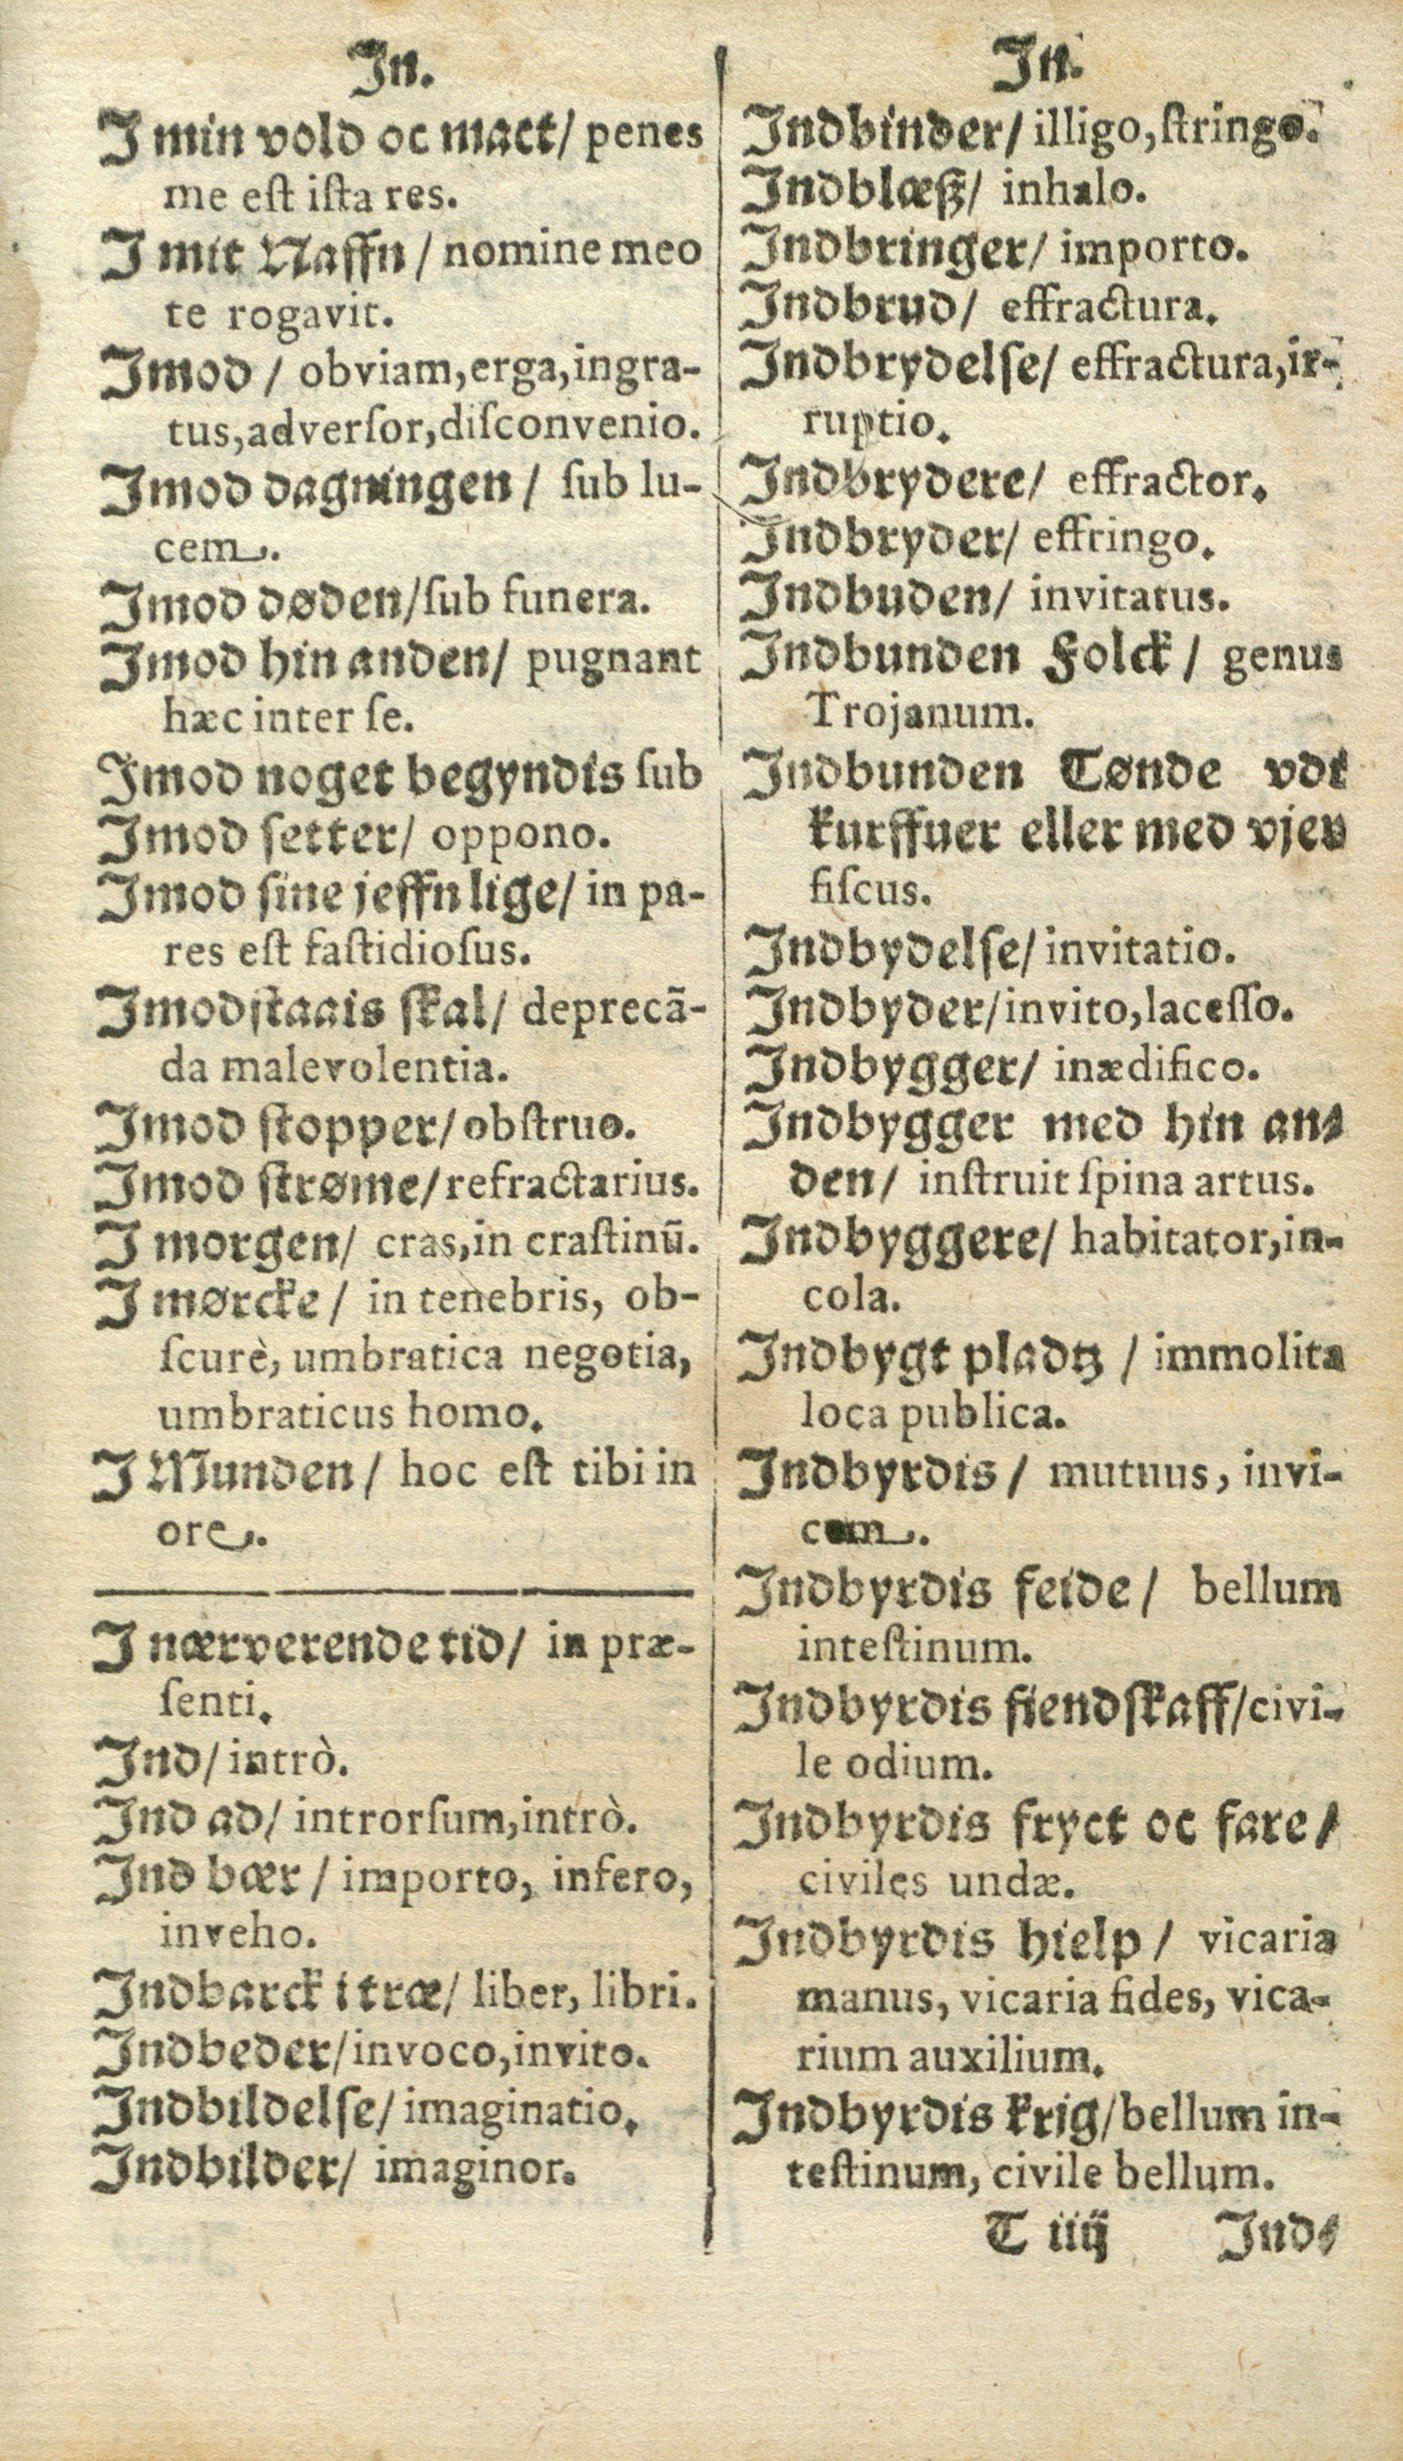 In.
I min vold oc mact/ penes
me eſt iſta res.
I mit Naffn / nomine meo
te rogavit.
Imod / obviam, erga, ingra-
tus, adverſor, diſconvenio.
Imod dagningen / ſub lu-
cem.
Imod døden/ ſub funera.
Imod hin anden/ pugnant
hæc inter ſe.
Imod noget begyndis ſub
Imod ſetter/ oppono.
Imod ſine jeffnlige/ in pa-
res eſt faſtidioſus.
Imodſtaais ſkal/ deprecã-
da malevolentia.
Imod ſtopper/ obſtruo.
Imod ſtrøme/ refractarius.
I morgen/ cras, in craſtinũ.
I mørcke / in tenebris, ob-
ſcurè, umbratica negotia,
umbraticus homo.
I Munden / hoc eſt tibi in
ore.
I nærverende tid/ in præ-
ſenti.
Ind/ intrò.
Ind ad/ introrſum, intrò.
Ind bær / importo, infero,
inveho.
Indbarck i træ/ liber, libri.
Indbeder/ invoco, invito.
Indbildelſe/ imaginatio.
Indbilder/ imaginor.
In.
Indbinder/ illigo, ſtringo.
Indblæſz/ inhalo.
Indbringer/ importo.
Indbrud/ effractura.
Indbrydelſe/ effractura, ir-
ruptio.
Indbrydere/ effractor.
Indbryder/ effringo.
Indbuden/ invitatus.
Indbunden Folck / genus
Trojanum.
Indbunden Tønde vdi
kurffuer eller med vjer
fiſcus.
Indbydelſe/ invitatio.
Indbyder/ invito, laceſſo.
Indbygger/ inædifico.
Indbygger med hin an-
den/ inſtruit ſpina artus.
Indbyggere/ habitator, in-
cola.
Indbygt pladtz / immolita
loca publica.
Indbyrdis / mutuus, invi-
cem.
Indbyrdis feide / bellum
inteſtinum.
Indbyrdis fiendſkaff/ civi-
le odium.
Indbyrdis fryct oc fare/
civiles undæ.
Indbyrdis hielp / vicaria
manus, vicaria fides, vica-
rium auxilium.
Indbyrdis krig/ bellum in-
teſtinum, civile bellum.
T iiij Ind-